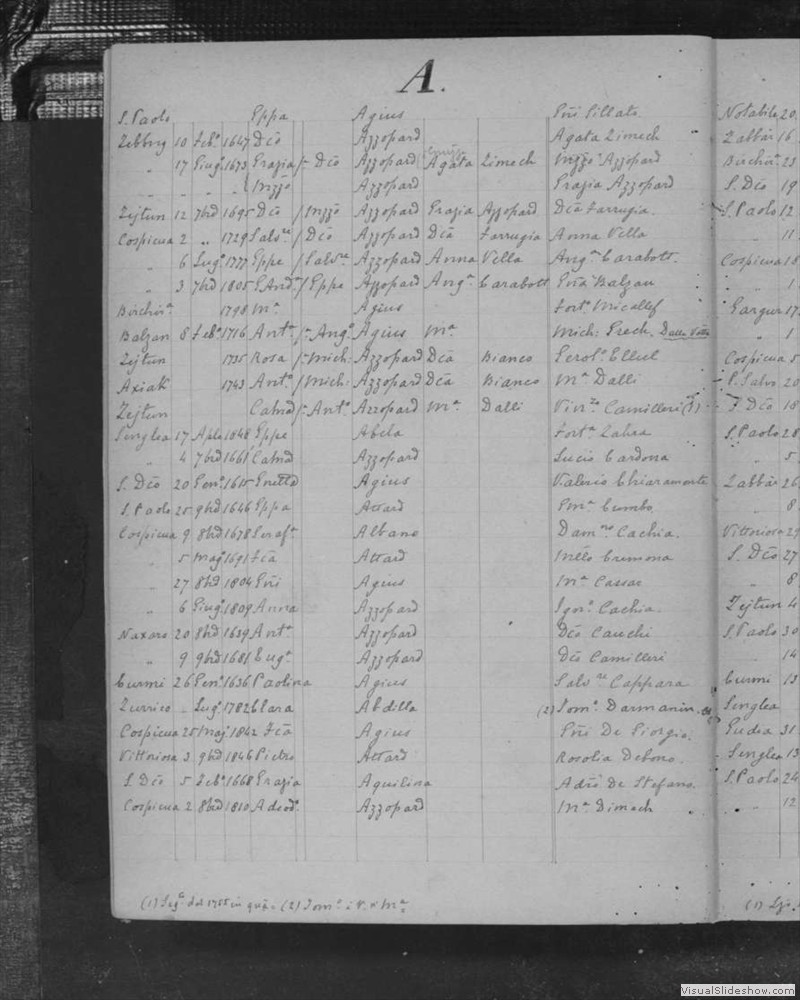 A.
S. Paolo Eppa Agius Gñi Sillato Notabile 20
Zebbug 10 Feb. 1647 Dco Azzopard Agata Zimech Zabbar 16
" 17 Giug. 1673 Grazia /- Dco Azzopard Agata Zimech Inzzo Azzopard Birchir. 23
" " " " Inzzo Azzopard Grazia Azzopard S. Dco 19
Zejtun 12 7bre 1695 Dco / Inzzo Azzopard Grazia Azzopard Dca Farrugia. S. Paolo 12
Cospicua 2 " 1729 Salv.re / Dco Azzopard Dca Farrugia Anna Vella " 11
" 6 Lug. 1777 Eppe / Salv.re Azzopard Anna Vella Ang.a Carabott. Cospicua 18
" 3 7bre 1805 / Eppe Azzopard Ang.a Carabott Balzan " 1
Birchir.a 1798 M.a Agius Fort.o Micallef Gargur 17
Balzan 8 Feb. 1716 Ant.a /- Ang.o Agius M.a Mich: Grech. " 1
Zejtun 1735 Rosa /- Mich: Azzopard Dca Bianco Gerol.o Ellul Cospicua 5
Axiak 1743 Ant.o / Mich: Azzopard Dca Bianco M.a Dalli P. Salvo 20
Zejtun Catnd /- Ant.o Azzopard M.a Dalli Vin.za Camilleri (1) S. Dco 18
Senglea 17 Aple 1648 Eppe Abela Fort.a Zahra S. Paolo 28
" 4 7bre 1661 Catnd Azzopard Lucio Cardona " 5
S. Dco 20 Gen. 1615 Agius Valerio Chiaramonte Zabbar 26
S. Paolo 25 9bre 1646 Eppa Attard Gm.a Cumbo. " 8
Cospicua 9 8bre 1678 Seraf.a Albano Dam.no Cachia. Vittoriosa 29
" 5 Mag. 1691 Fca Attard Mello Cremona S. Dco 27
" 27 8bre 1804 Gñi Agius M.a Cassar " 8
" 6 Giug. 1809 Anna Azzopard Ign.o Cachia. Zejtun 4
Naxaro 20 8bre 1639 Ant.a Azzopard Dco Cauchi S. Paolo 30
" 9 9bre 1681 Eug.a Azzopard Dco Camilleri " 14
Curmi 26 Gen. 1636 Paolina Agius Salv.re Cappara Curmi 13
Zurrico - Lug. 1782 Clara Abdilla (2) Tom.o Darmanin. Senglea
Cospicua 25 Mag. 1842 Fca Agius Gñi De Giorgio. Gudia 31
Vittoriosa 3 9bre 1846 Pietro Attard Rosolia Debono. Senglea 13
S. Dco 5 Feb. 1668 Grazia Aquilina Adro De Stefano. S. Paolo 24
Cospicua 2 8bre 1810 Adeod.a Azzopard M.a Dimech " 12
VisualSlideshow.com